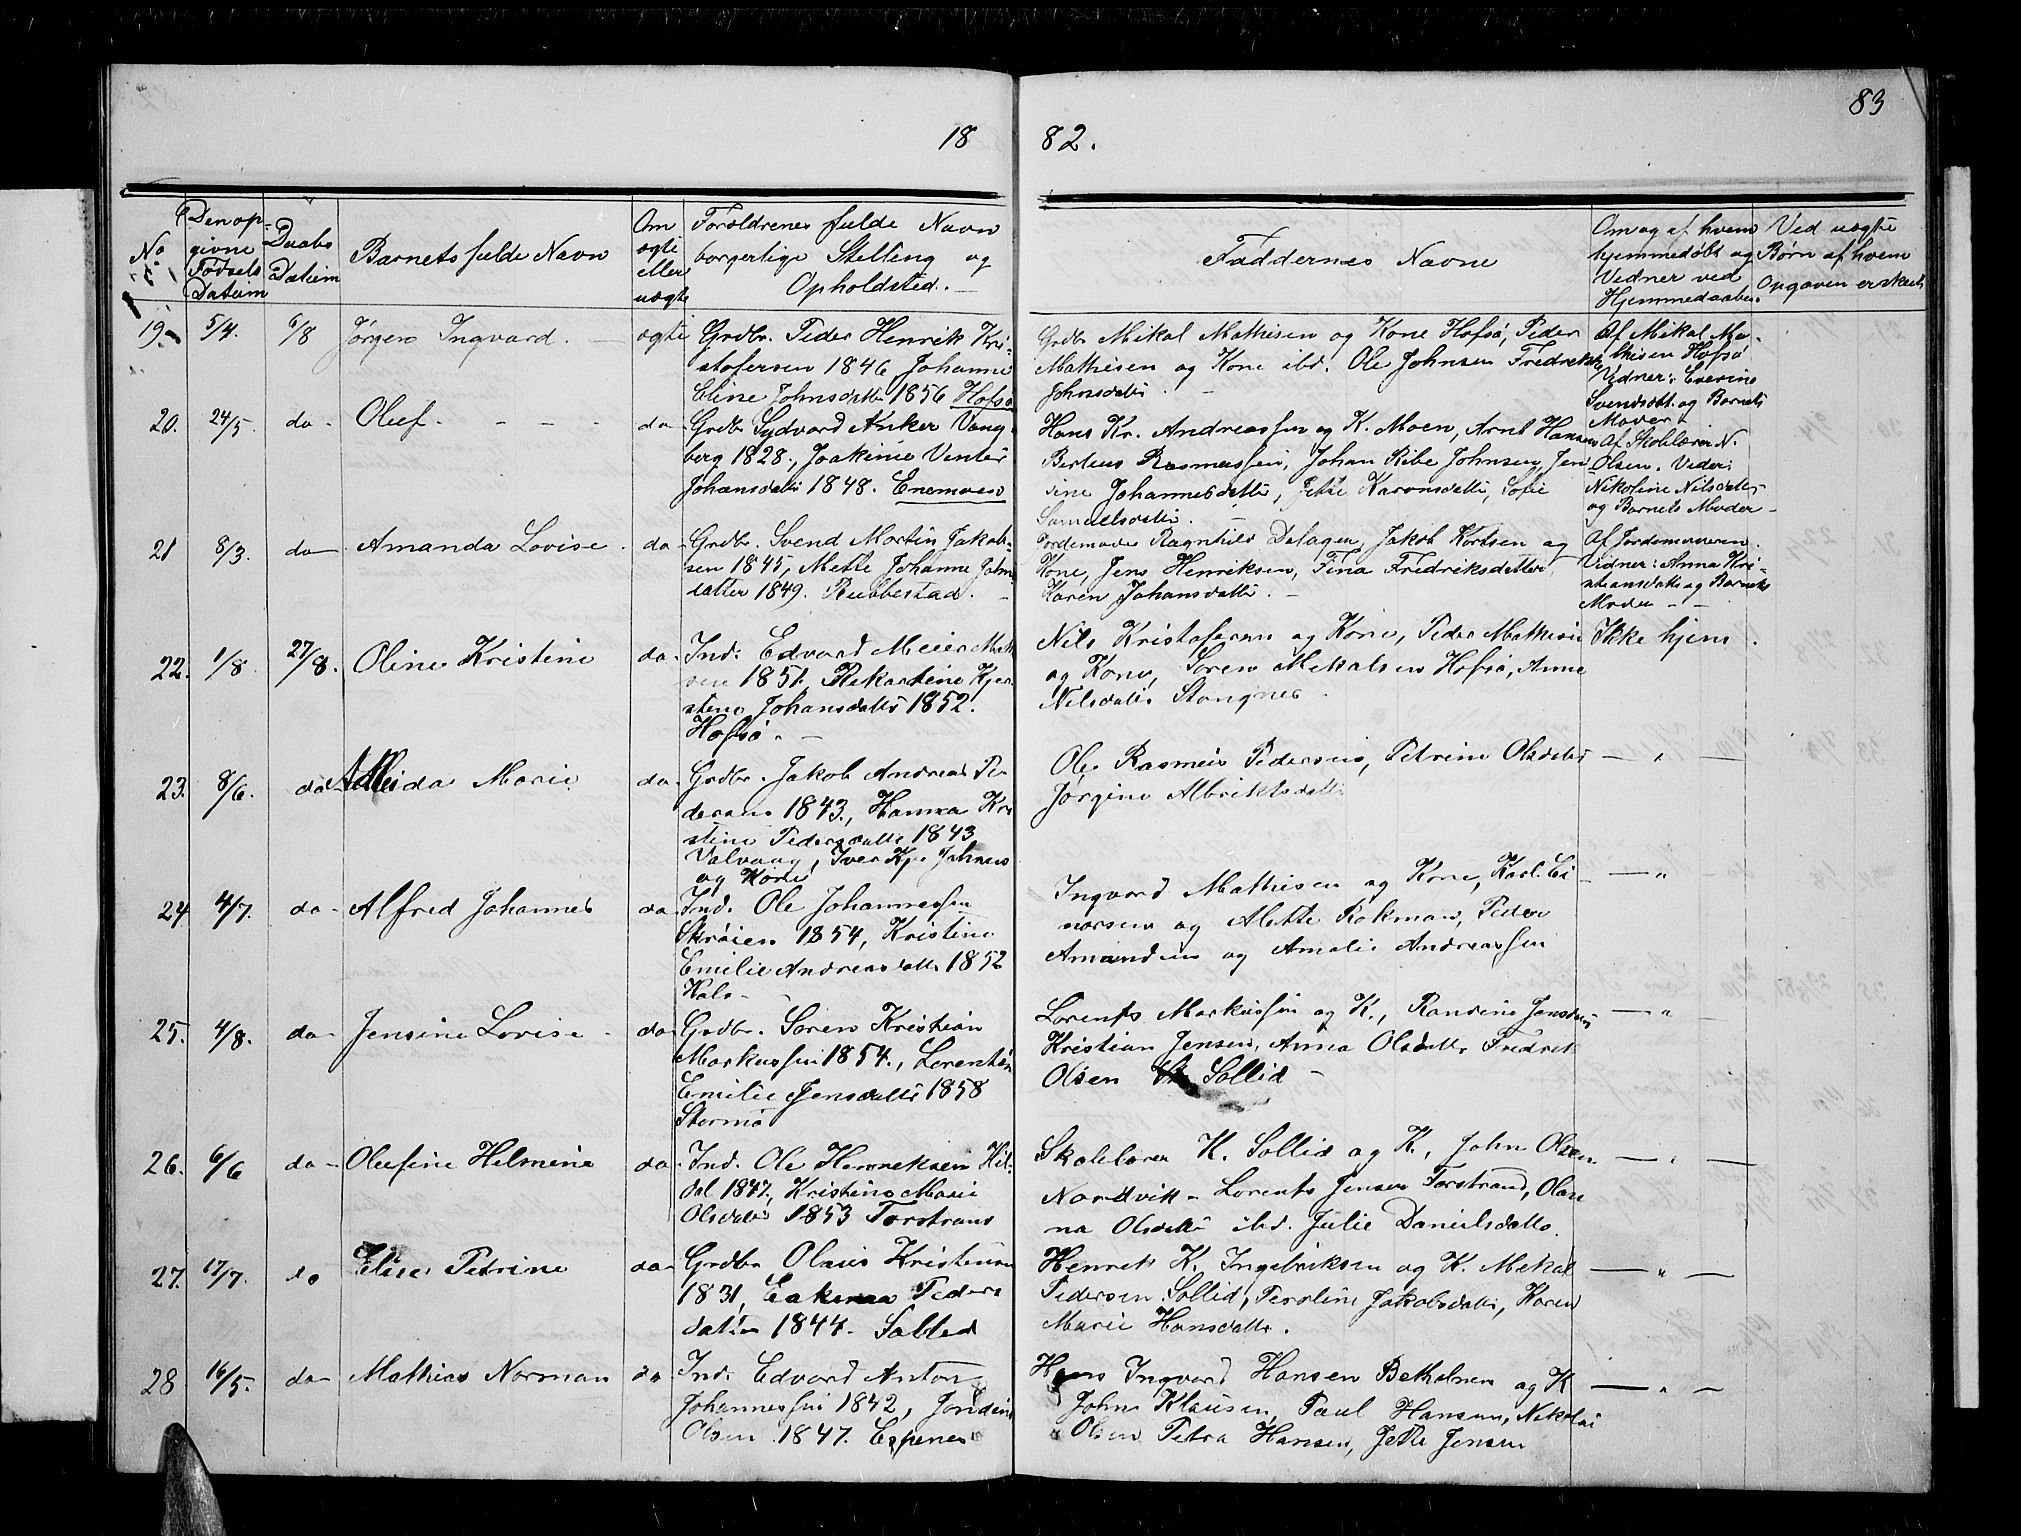 83
18 82.
No
Den op-
givne
Fødsels
Datum
Daabs
Datum
Barnets fulde Navn
Om
ægte
eller
uægte
Forældrenes fulde Navn
borgerlige Stilling og
Opholdsted.
Faddernes Navne
Om og af hvem
hjemmedøbt og
Vidner ved
Hjemmedaaben.
Ved uægte
Børn af hvem
Opgaven er skeet
19. 5/4. 6/8 Jørgen Ingvard. ægte
Grdbr. Peder Henrik Kri-
stofersen 1846, Johanne
Eline Johnsdatter 1856 Hofsø
Grdbr Mikal Mathisen og Kone Hofsø, Peder
Mathisen og Kone ibd. Ole Johnsen Fredrikke
Johnsdatter.
Af Mikal Ma-
thisen Hofsø
Vidner: Everine
Svendsdtt. og Barnets
Moder
20. 24/5. do- Oluf. do-
Grdbr Sydvard Anker Vang-
berg 1828., Joakime
Johansdatter 1848. Enemoen
Hans Kr. Andreassen og K. Moen, Arnt Hansen
Berteus Rasmussen, Johan Ribe Johnsen, Jen
sine Johannesdatter, Jette Karonsdatter, Sofie
Samuelsdatter.
Af Skolelærer N.
Olsen. Vidner:
Nikoline Nilsdatter
og Barnets Moder -
21 8/3. do- Amanda Lovise. do-
Grdbr. Svend Martin Jakob-
sen 1845, Mette Johanne John
datter 1849. Rubbestad. -
Jordemoder Ragnhild Dalagen, Jakob Kortsen og
Kone, Jens Henriksen, Fina Fredriksdatter
Karen Johansdatter. -
Af Jordemoderen.
Vidner: Anna Kri-
stiansdatter og Barnets
Moder - -
22. 1/8. 27/8. Oline Kristine do-
Ind. Edvard Meier
sen 1851. Rikartine Kjer
stine Johansdatter 1852.
Hofsø. -
Nils Kristofersen og Kone, Peder Mathisen
og Kone, Søren Mikalsen Hofsø, Anne
Nilsdatter Stangnes.
Ikke hjem.
23. 8/6. do- Marie do-
Grdbr. Jakob Andreas Pe-
dersen 1843., Hanna Kri
stine Pedersdatter 1843
Valvaag, Iver Kjr Johnsen
og Kone
Ole Rasmus Pedersen, Petrine Olsdatter
Jørgine Albriktsdatter
— " —
24 4/7. do- Alfred Johannes do-
Ind. Ole Johannessen
Skrøien 1854, Kristine
Emilie Andreasdatter 1852
Hals -
Ingvard Mathisen og Kone, Karl Ei-
narsen og Alette Rokman, Peder
Amundsen og Amalie Andreassen
— "
25. 4/8. do- Jensine Lovise - do-
Grdbr. Søren Kristian
Markussen 1854., Lorentin
Emilie Jensdatter 1858
Stormo
Lorents Markussen og K., Randine Jensdatter
Kristian Jensen, Anna Olsdatter Fredrik
Olsen Sollid -
— "
26. 6/6 do- Olufine Helmine do-
Ind. Ole Henriksen Hil-
dal 1847, Kristine Marie
Olsdatter 1853 Torstrand
Skolelærer K. Sollid og K., John Olsen
Nordvik - Lorents Jensen Torstrand, Olau
na Olsdatter ibd. Julie Danielsdatter.
— " —
27. 17/7. do Elise Petrine do-
Grdbr Olaus Kristiansen
1831, Peders
datter 1844. Solted
Henrik K. Ingebriksen og K. Mikal
Pedersen Sollid, Peroline Jakobsdatter, Karen
Marie Hansdatter.
— " —
28 16/5. do- Mathias Norman do
Ind. Edvard Anton
Johannessen 1842, Jondine
Olsen 1847. Espenes
Hans Ingvard Hansen Betholmen og K
John Klausen, Paul Hansen, Nikolai
Olsen Petra Hansen, Jette Jensen
— " —